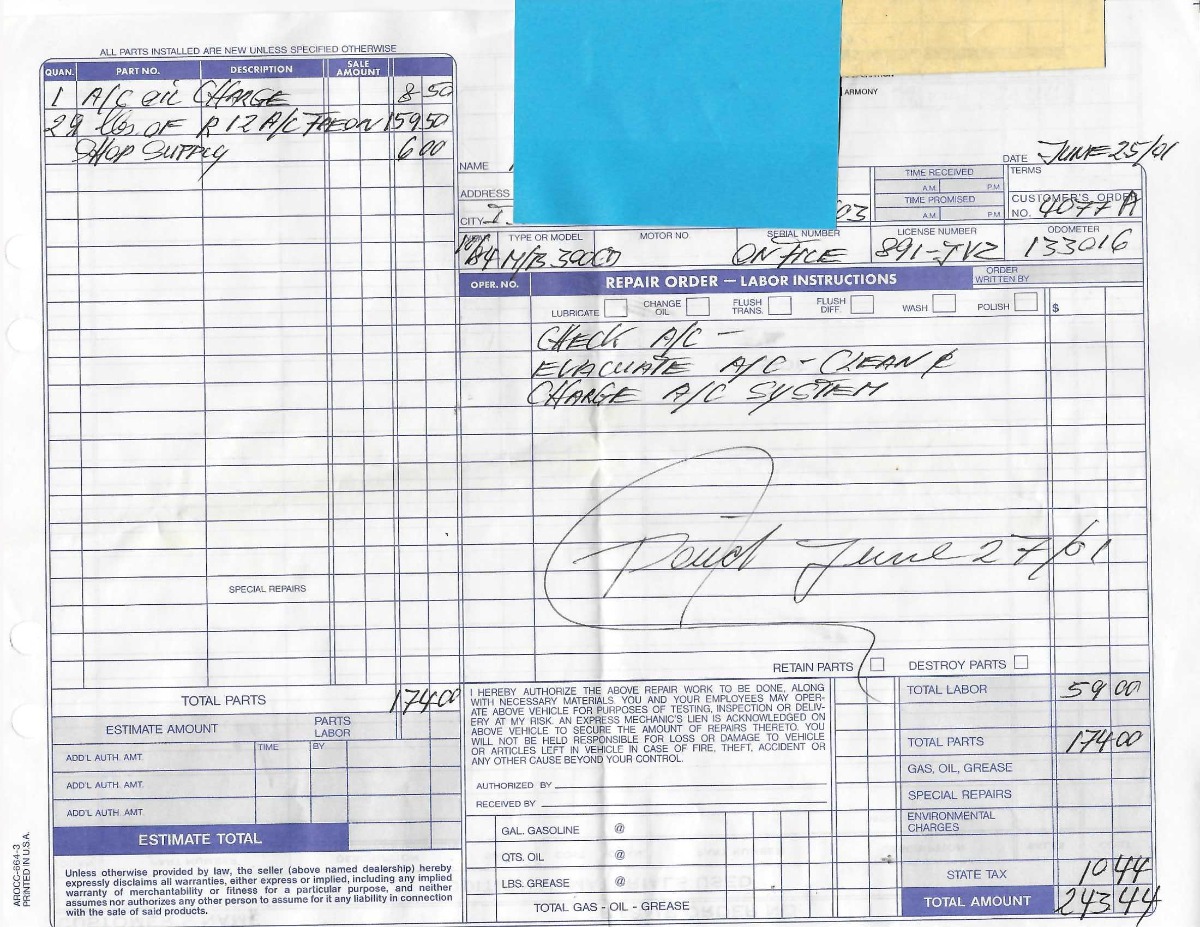 ALL PARTS INSTALLED ARE NEW UNLESS SPECIFIED OTHERWISE
QUAN. PART NO. DESCRIPTION SALE AMOUNT
1 A/C OIL CHARGE 8 50
29 lbs OF R12 A/C FREON 159 50
SHOP SUPPLY 6 00
SPECIAL REPAIRS
TOTAL PARTS 174 00
ESTIMATE AMOUNT PARTS LABOR
TIME BY
ADD'L AUTH. AMT.
ADD'L AUTH. AMT.
ADD'L AUTH. AMT.
ESTIMATE TOTAL
Unless otherwise provided by law, the seller (above named dealership) hereby
expressly disclaims all warranties, either express or implied, including any implied
warranty of merchantability or fitness for a particular purpose, and neither
assumes nor authorizes any other person to assume for it any liability in connection
with the sale of said products.
AROCC-664-3
PRINTED IN U.S.A.
ARMONY
NAME
ADDRESS
CITY 03
DATE JUNE 25/01
TIME RECEIVED
A.M. P.M.
TIME PROMISED
A.M. P.M.
TERMS
CUSTOMER'S ORDER
NO. 4077A
TYPE OR MODEL MOTOR NO SERIAL NUMBER LICENSE NUMBER ODOMETER
84 M/B 390CD ON FILE 891-JVZ 133016
OPER. NO. REPAIR ORDER — LABOR INSTRUCTIONS ORDER WRITTEN BY
LUBRICATE CHANGE OIL FLUSH TRANS. FLUSH DIFF. WASH POLISH $
CHECK A/C -
EVACUATE A/C - CLEAN &
CHARGE A/C SYSTEM
Paid June 27/01
RETAIN PARTS DESTROY PARTS
I HEREBY AUTHORIZE THE ABOVE REPAIR WORK TO BE DONE, ALONG
WITH NECESSARY MATERIALS. YOU AND YOUR EMPLOYEES MAY OPER-
ATE ABOVE VEHICLE FOR PURPOSES OF TESTING, INSPECTION OR DELIV-
ERY AT MY RISK. AN EXPRESS MECHANIC'S LIEN IS ACKNOWLEDGED ON
ABOVE VEHICLE TO SECURE THE AMOUNT OF REPAIRS THERETO. YOU
WILL NOT BE HELD RESPONSIBLE FOR LOSS OR DAMAGE TO VEHICLE
OR ARTICLES LEFT IN VEHICLE IN CASE OF FIRE, THEFT, ACCIDENT OR
ANY OTHER CAUSE BEYOND YOUR CONTROL.
AUTHORIZED BY
RECEIVED BY
GAL. GASOLINE @
QTS. OIL @
LBS. GREASE @
TOTAL GAS - OIL - GREASE
TOTAL LABOR 59 00
TOTAL PARTS 174 00
GAS, OIL, GREASE
SPECIAL REPAIRS
ENVIRONMENTAL CHARGES
STATE TAX 10 44
TOTAL AMOUNT 243 44